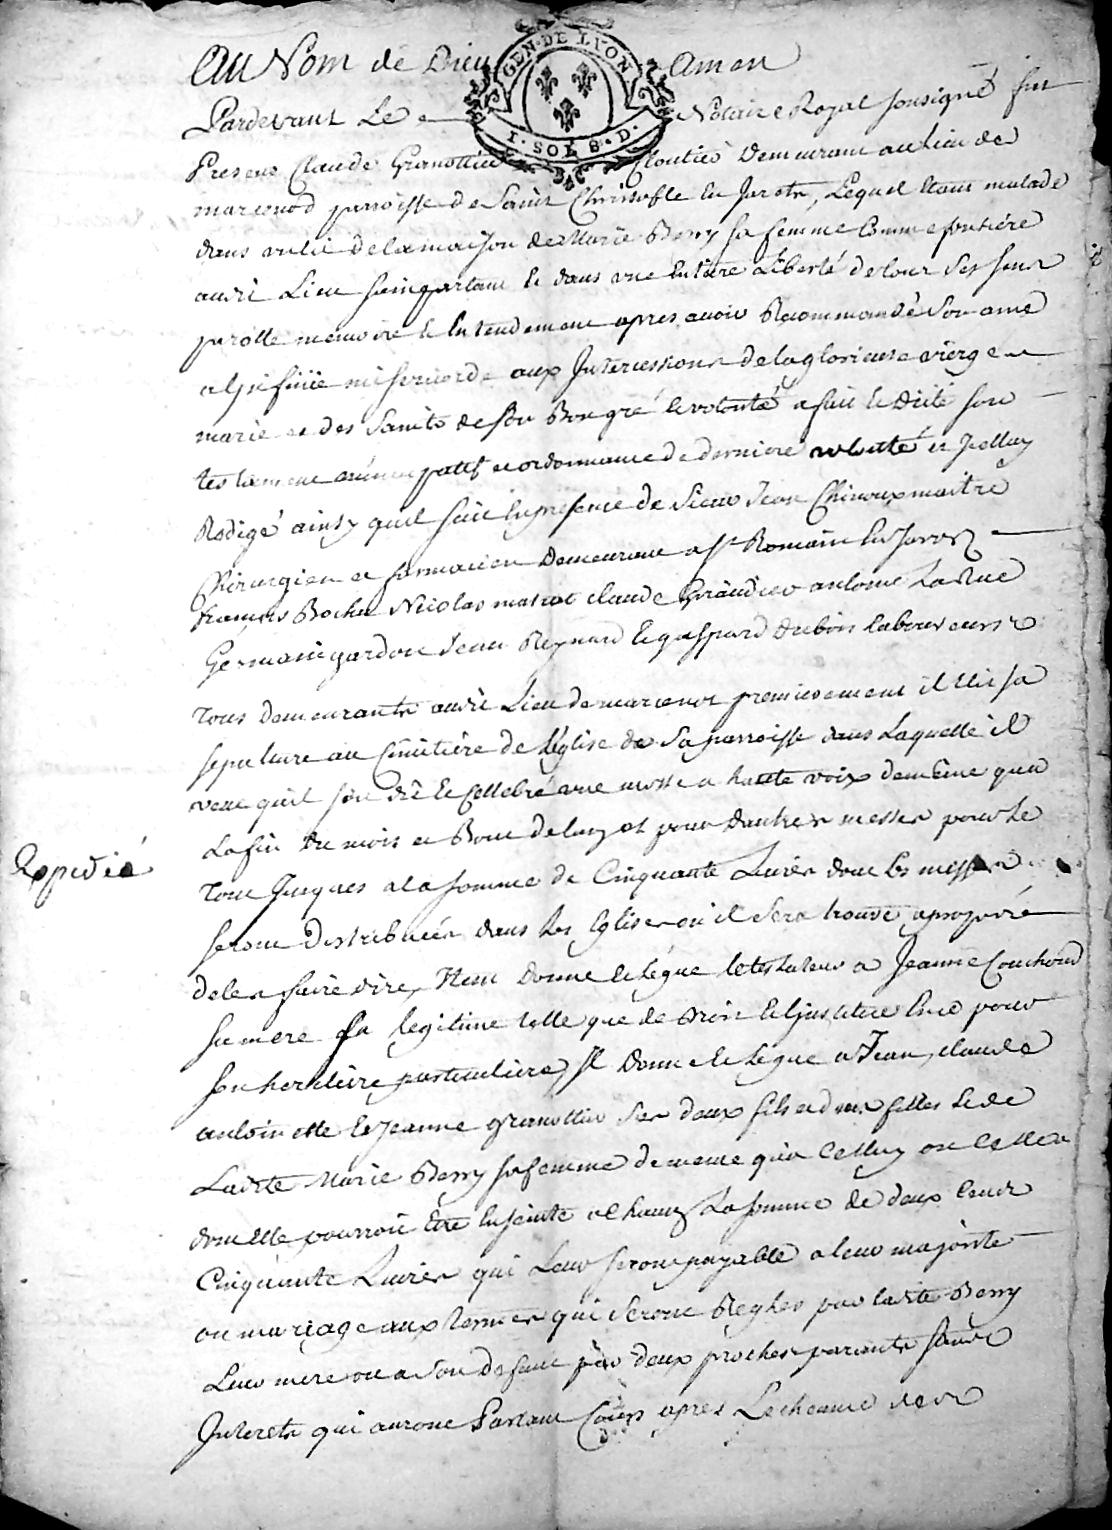 Au Nom de Dieu Amen
GEN. DE LYON
I. SOL 8. D.
Pardevant Le Notaire Royal soussigné fut
Present Claude Granottier Cloutier demeurant au lieu de
marcenod parroisse de Saint Christofle en Jarets, Lequel étant malade
dans un lit de la maison de Marie Berry sa femme
audit Lieu parlant et dans une entiere Liberté de tous ses sens
parolle memoire et entendement apres avoir Recommandé Son ame
a l'jnfinie misericorde aux Jntercessions de la glorieuse vierge
marie et des Saints de son Bon gré et volonté a fait et Dicté son
testament nuncupatif et ordonnance de derniere volonté et Jcelluy
Redigé ainsy quil suit en presence de Sieur Jean Chiroux maitre
Chirurgien et farmacien demeurant a St Romain en Jarez
françois Boche Nicolas matrat claude Grandier antoine LaRue
Germain gardon Jean Reynard et gaspard dubois laboureurs
tous demeurants audit Lieu de marcenot premierement il élit sa
sepulture au Cimetière de l'église de sa parroisse dans Laquelle il
veut quil soit dit et Cellebré une messe a haute voix de même qua
La fin du mois et Bout de lan et pour dautres messes pour le
tout Jusques a la somme de Cinquante Livres dont les messes
seront distribuées dans les Eglises ou il sera trouvé aproposré
Expedié
de les faire dire, Item donne et légue le testateur a Jeanne Couchoud
sa mere sa legitime telle que de droit et l'jnstitue en ce pour
son heritière particulière, Jl donne et legue a Jean, claude
antoinette et Jeanne granottier ses deux fils et deux filles et de
Ladite Marie Berry sa femme de meme qu'a Celluy ou Celle
dont elle pourroit être enceinte a chauz La somme de deux Cents
Cinquante Livres qui Leur seront payable a leur majorité
ou mariage aux termes qui seront Reglés par ladite Berry
Leur mere ou a son defaut par deux proches parents sans
Jnterets qui auront Partant Cours apres L'echeance de